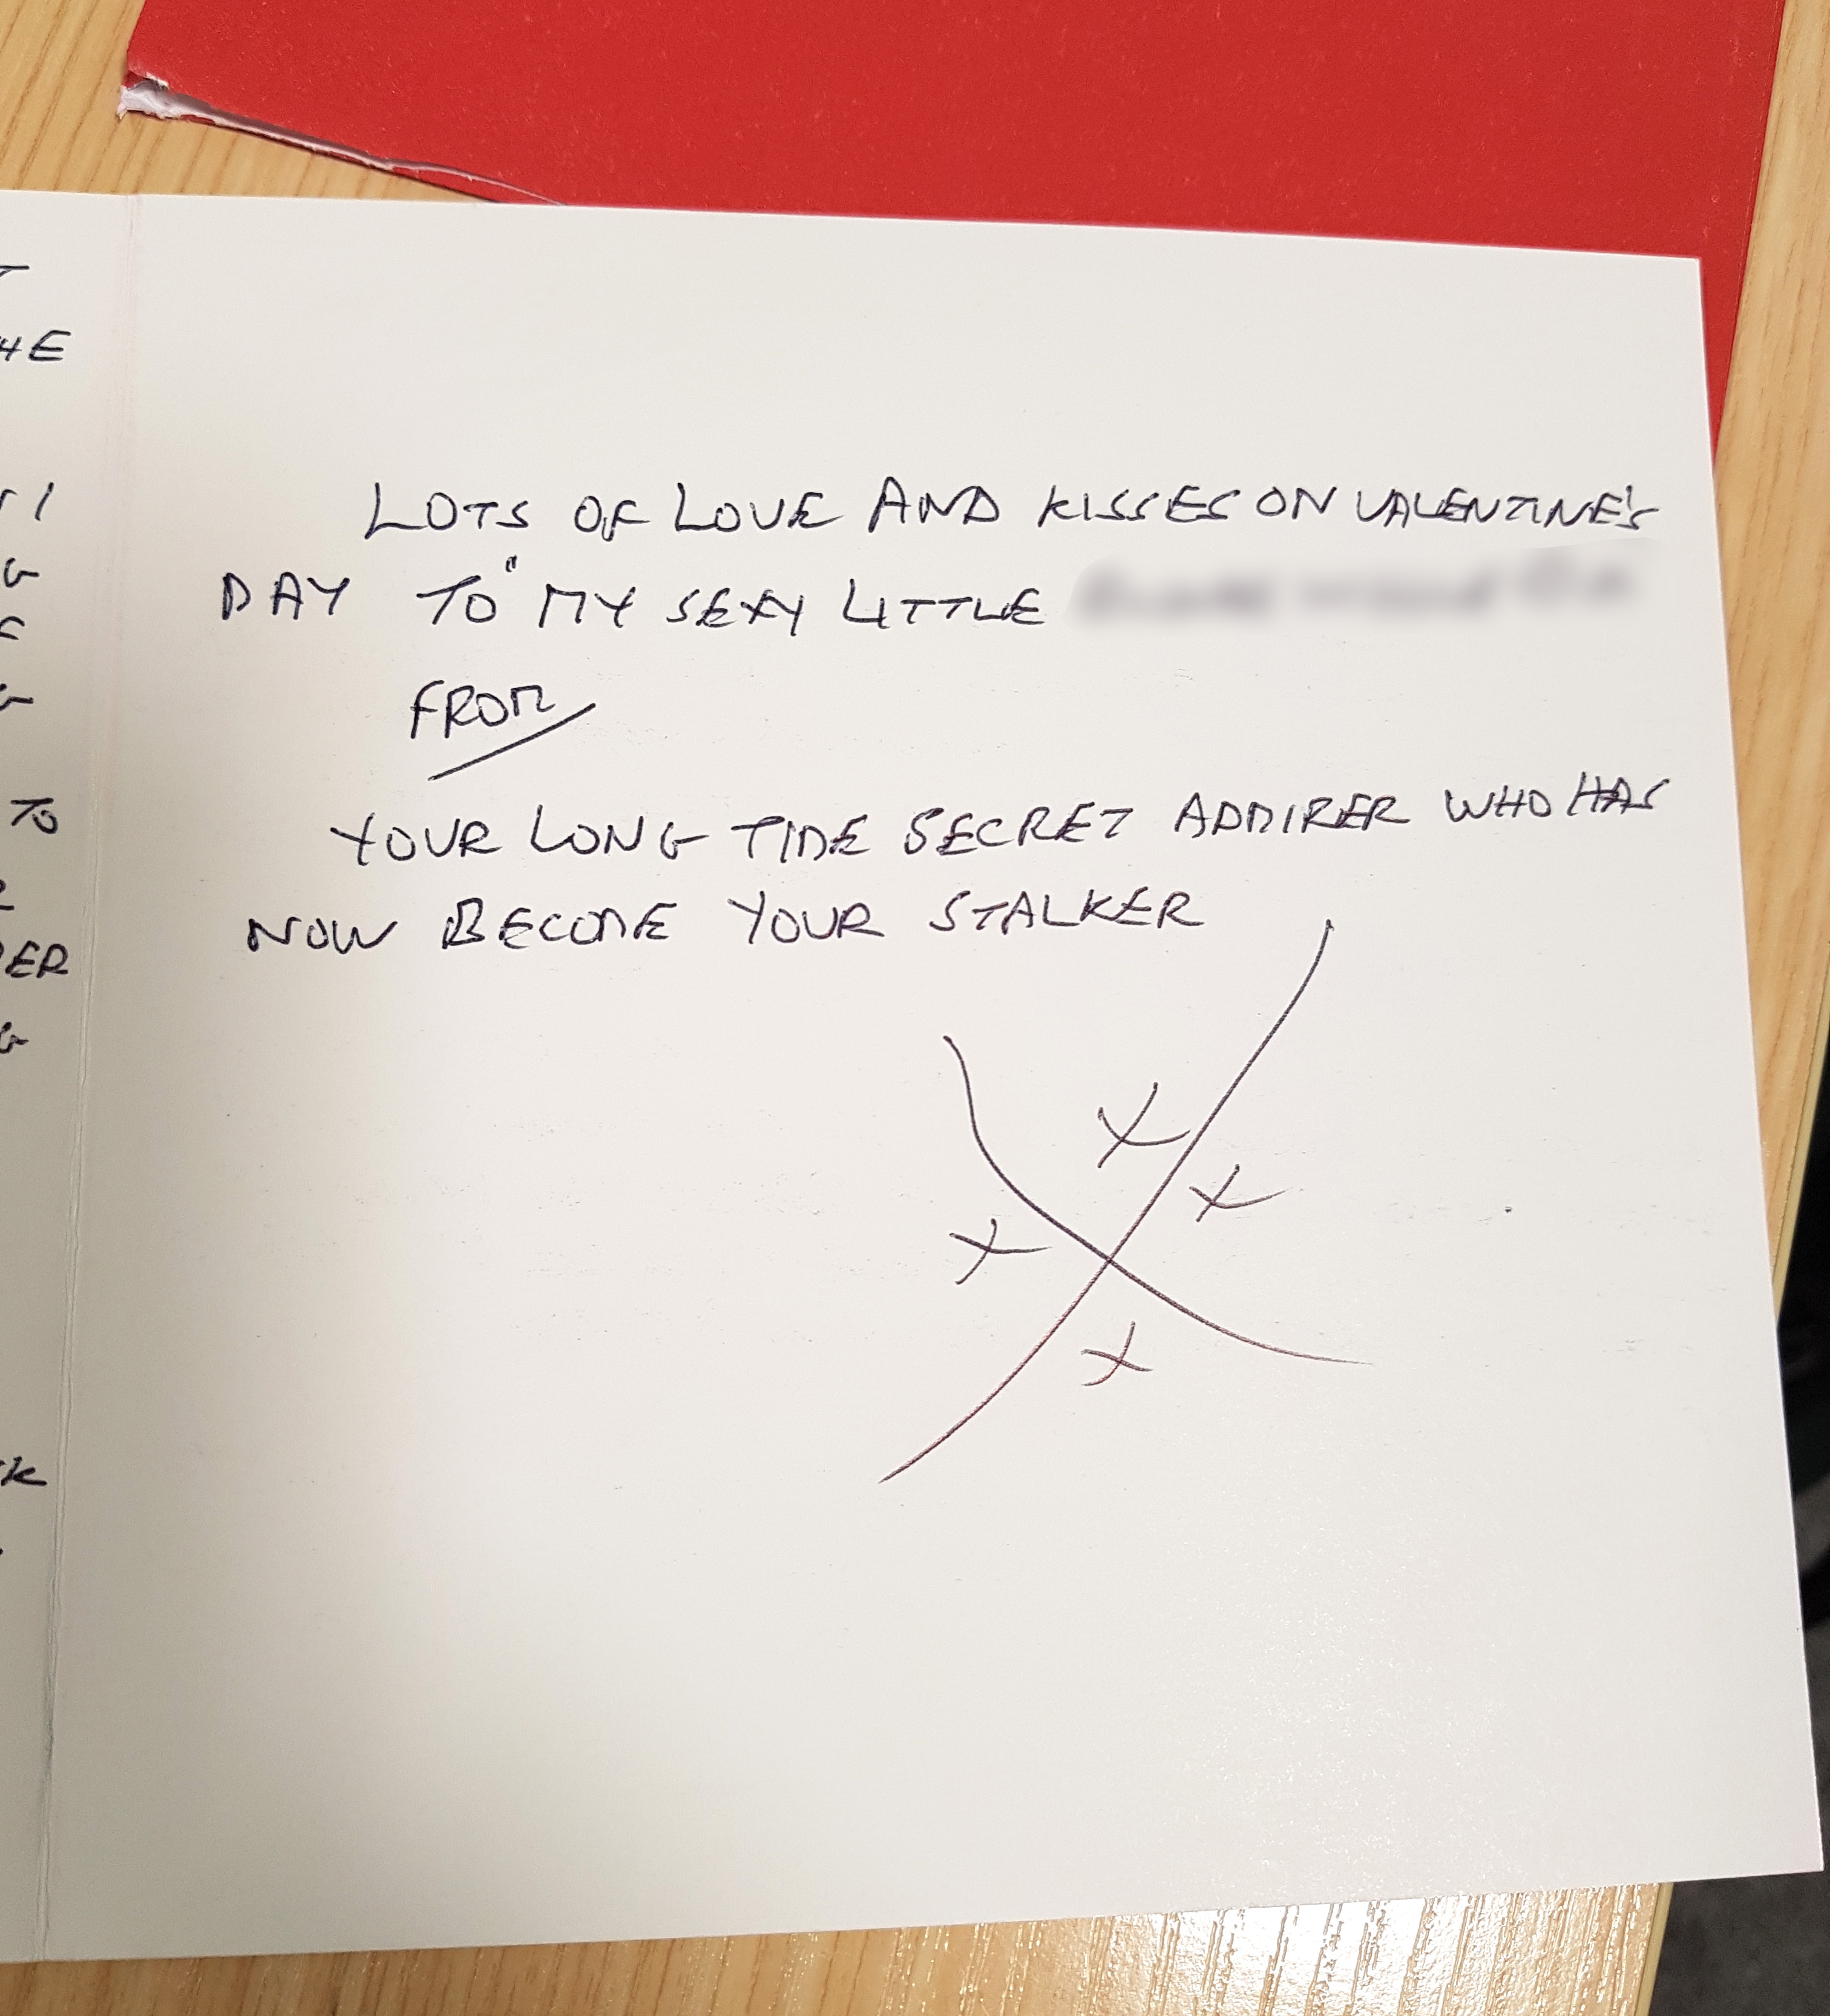 HE
TO
LOTS OF LOVE AND KISSES ON VALENTINE'S
DAY TO " MY SEXY LITTLE
FROM
YOUR LONG TIME SECRET ADMIRER WHO HAS
NOW BECOME YOUR STALKER
X
X
X
X
X